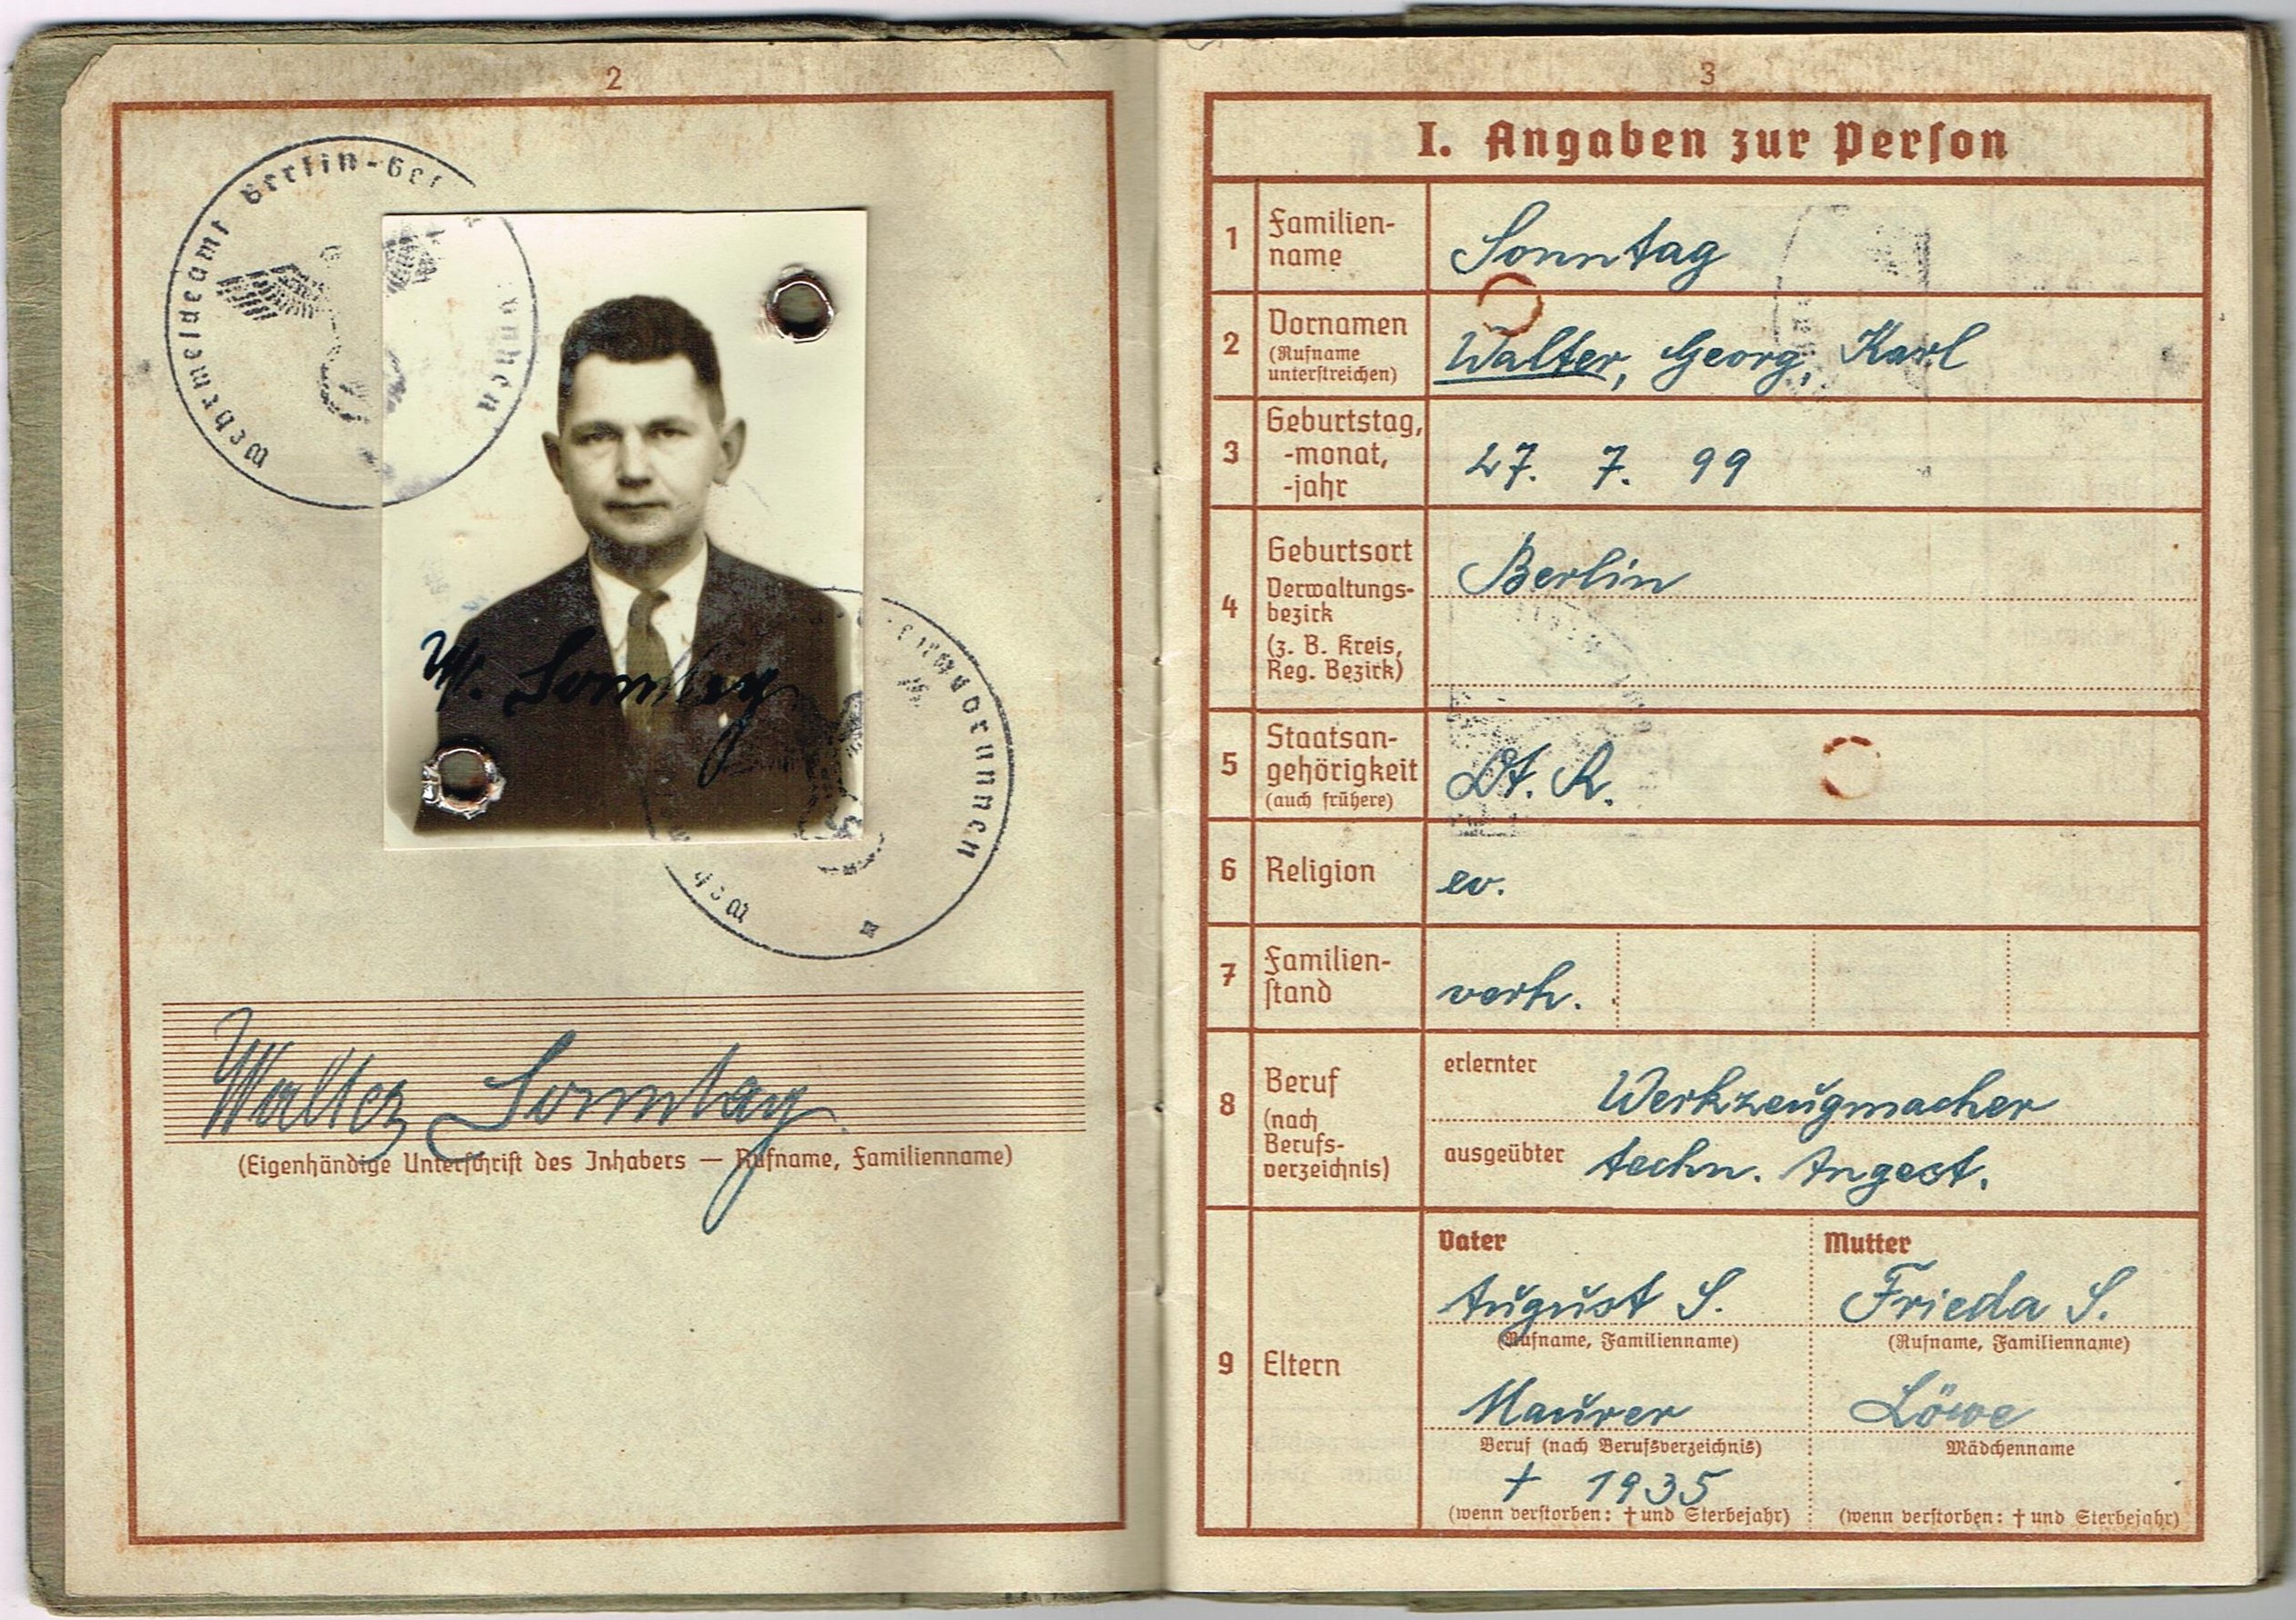 2
Wehrmeldeamt Berlin-Ges
unnen
W. Sonntag
undbrunnen
Weh
Walter Sonntag
(Eigenhändige Unterschrift des Inhabers — Rufname, Familienname)
3
I. Angaben zur Person
1 Familien-
name
Sonntag
2 Vornamen
(Rufname
unterstreichen)
Walter, Georg, Karl
3 Geburtstag,
-monat,
-jahr
27. 7. 99
4 Geburtsort
Verwaltungs-
bezirk
(z. B. Kreis,
Reg. Bezirk)
Berlin
5 Staatsan-
gehörigkeit
(auch frühere)
Dt. R.
6 Religion
ev.
7 Familien-
stand
verh.
8 Beruf
(nach
Berufs-
verzeichnis)
erlernter Werkzeugmacher
ausgeübter techn. Angest.
9 Eltern
Vater Mutter
August S. Frieda S.
(Rufname, Familienname) (Rufname, Familienname)
Maurer Löwe
Beruf (nach Berufsverzeichnis) Mädchenname
† 1935
(wenn verstorben: † und Sterbejahr) (wenn verstorben: † und Sterbejahr)